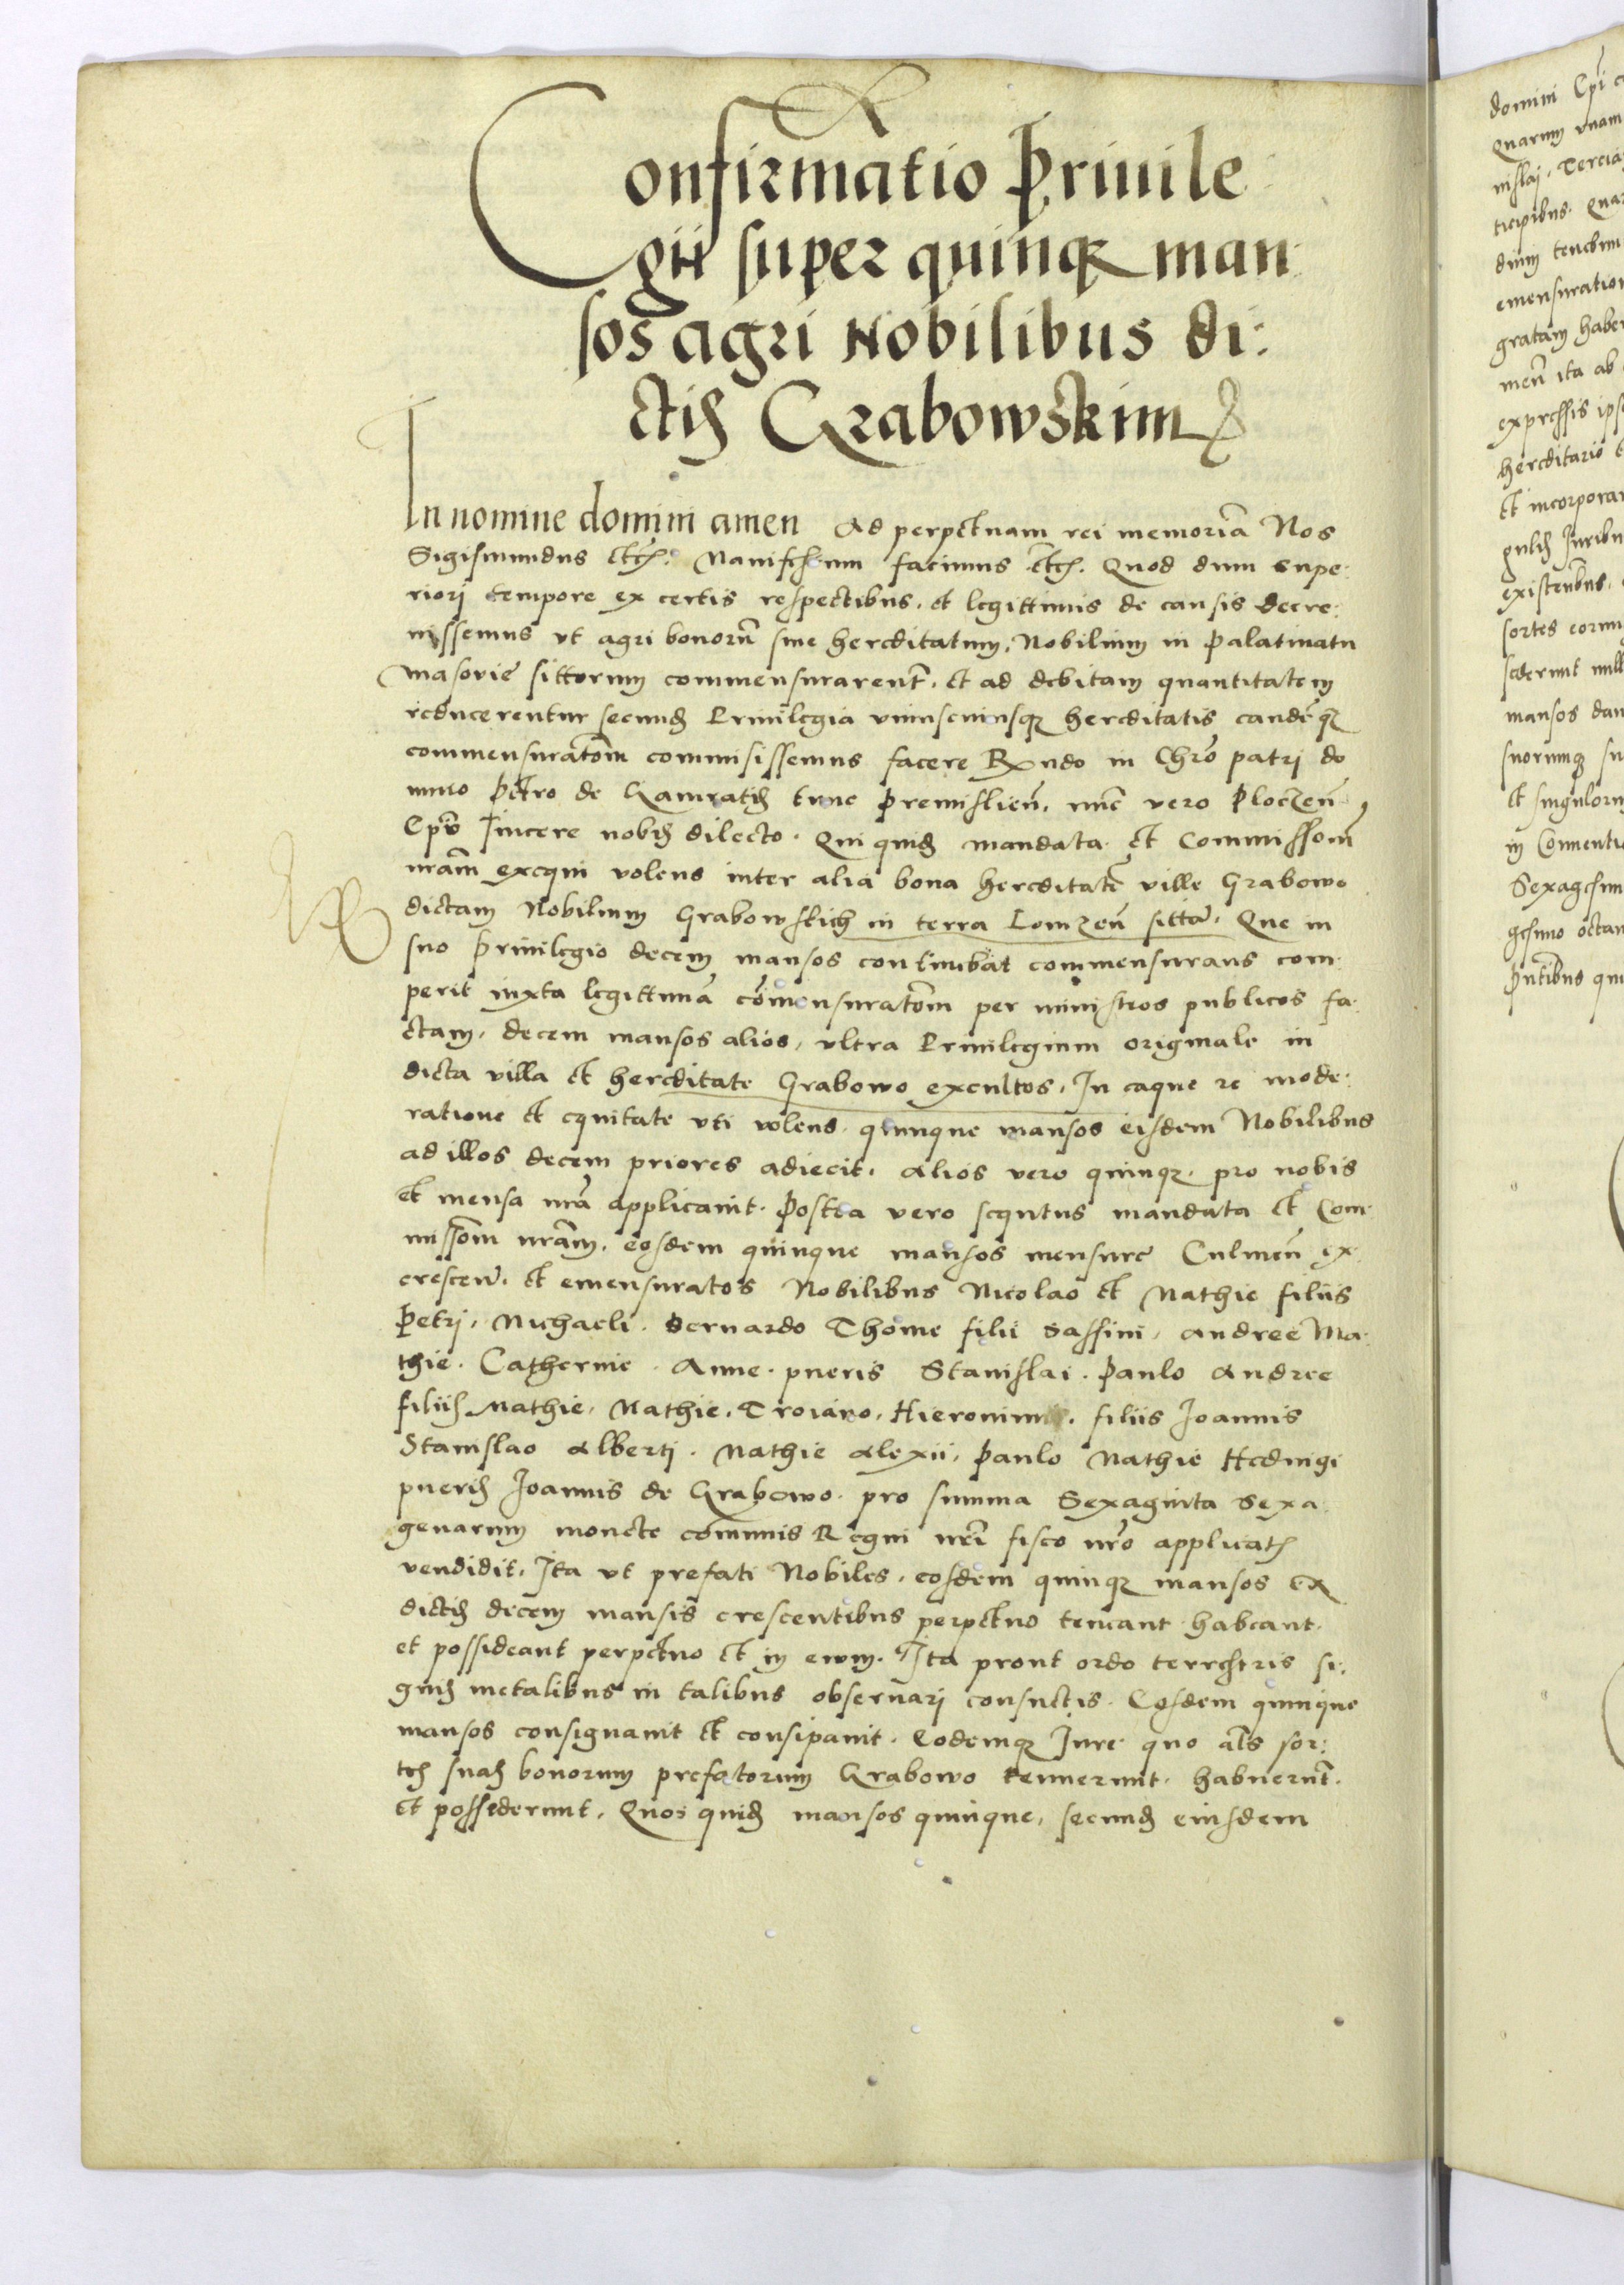 Confirmatio Priuile
gii super quinq₃ man
sos agri Nobilibus di:
ctis Grabowskim
In nomine domini amen Ad perpetuam rei memoriā Nos
Sigismundus etc. Manifestum facimus etc. Quod dum supe:
riorj tempore ex certis respectibus, et legittimis de causis decre:
uissemus vt agri bonorū siue hereditatum, Nobilium in Palatinatu
Masouie sittorum commensurarent̄, et ad debitam quantitatem
reducerentur secund Priuilegia vniuscuiusq₃ hereditatis eandēq₃
commensuratōm commisissemus facere Rṇdo in Chrō patrj do
mino Petro de Gamratis tunc Premislien̄, nūc vero Ploczen̄
Epō sincere nobis dilecto. Qui quid mandata et Commissiōm
nrām exequi volens inter alia bona hereditatē ville Grabowo
dictam Nobilium Grabowskich in terra Lomzen̄ sittā. Que in
suo Priuilegio decem mansos continebat commensurans com:
perit iuxta legittimā cōmensuratōm per ministros publicos fa:
ctam, decem mansos alios, vltra Priuilegium originale in
dicta villa et hereditate Grabowo excultos, In eaque re mode:
ratione et equitate vti volens, quinque mansos eisdem Nobilibus
ad illos decem priores adiecit, Alios vero quinq₃ pro nobis
et mensa nrā applicauit. Postea vero sequtus mandata et Com:
missiōm nrām, eosdem quinque mansos mensure Culmen̄ ex:
crescen̄. et emensuratos Nobilibus Nicolao et Mathie filiis
Petrj, Michaeli. Bernardo Thome filii Sassini, Andree Ma:
thie. Catherine. Anne. pueris Stanislai. Paulo Andree
filiis Mathie, Mathie. Troiano, Hieronimo. filiis Joannis
Stanislao Albertj. Mathie Alexii, Paulo Mathie Heduigi
pueris Joannis de Grabowo. pro summa Sexaginta sexa:
genarum monete cōmunis Regni nrī fisco nrō applicatis
vendidit, Ita vt prefati Nobiles, eosdem quinq₃ mansos ex
dictis decem mansis crescentibus perpetuo teneant habeant.
et possideant perpetuo et in ewm. Ita prout ordo terrestris si:
gnis metalibus in talibus obseruarj consuetis. Eosdem quinque
mansos consignauit et consipauit. Eodemq₃ Jure quo al̄s sor:
tes suas bonorum prefatorum Grabowo tenuerunt, habuerūt.
et possederunt, Quos quid mansos quinque, secund eiusdem
domini Epī
quarum vnam
nislaj, Tercia
ticipibus. qua
dium tenebun
emensuration
gratam habe
men̄ ita ab
expressis ips
hereditario
et incorpora
gulis Juribu
existentibus,
sortes eorum
sederunt null
mansos dan
suorumq₃ su
et singuloru
in Conuentu
Sexagesim
gesimo octau
pn̄tibus qui